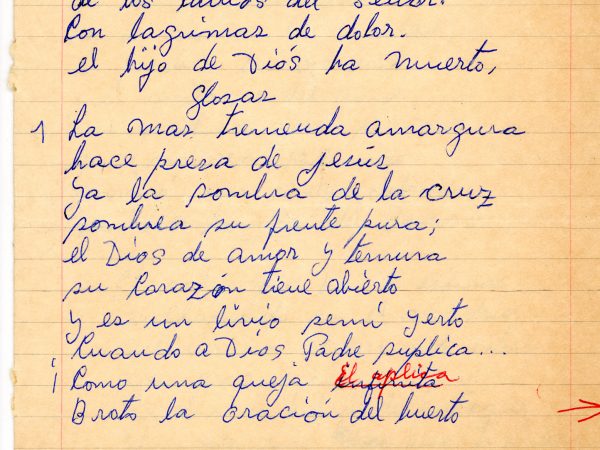 de los labios del señor.
Con lagrimas de dolor.
el hijo de Diós ha muerto,
Glosas
1 La mas tremenda amargura
hace presa de Jesús
ya la sombra de la cruz
sombrea su frente pura;
el Diós de amor y ternura
su Corazón tiene abierto
y es un livio semi yerto
Cuando a Diós Padre suplica...
¡ Como una queja
Broto la oración del huerto